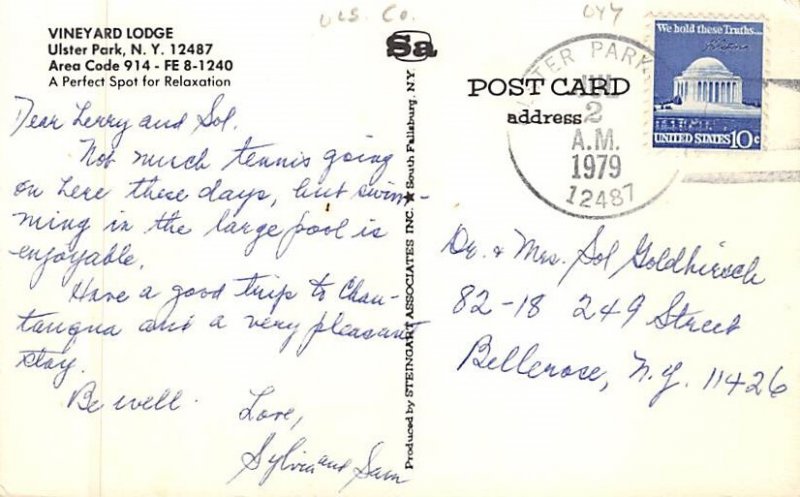 VINEYARD LODGE
Ulster Park, N. Y. 12487
Area Code 914 - FE 8-1240
A Perfect Spot for Relaxation
Uls. Co.
044
Sa
POST CARD
address
We hold these Truths...
UNITED STATES 10c
ULSTER PARK
JUL
2
A.M.
1979
12487
Dear Lerry and Sol.
Not much tennis going
on here these days, but swim-
ming in the large pool is
enjoyable.
Have a good trip to Chau-
tauqua and a very pleasant
stay.
Be well.
Love,
Sylvia and Sam
Produced by STEINGART ASSOCIATES INC. ★ South Fallsburg, N.Y.
Dr. & Mrs. Sol Goldhirsch
82-18 249 Street
Bellerose, N.Y. 11426